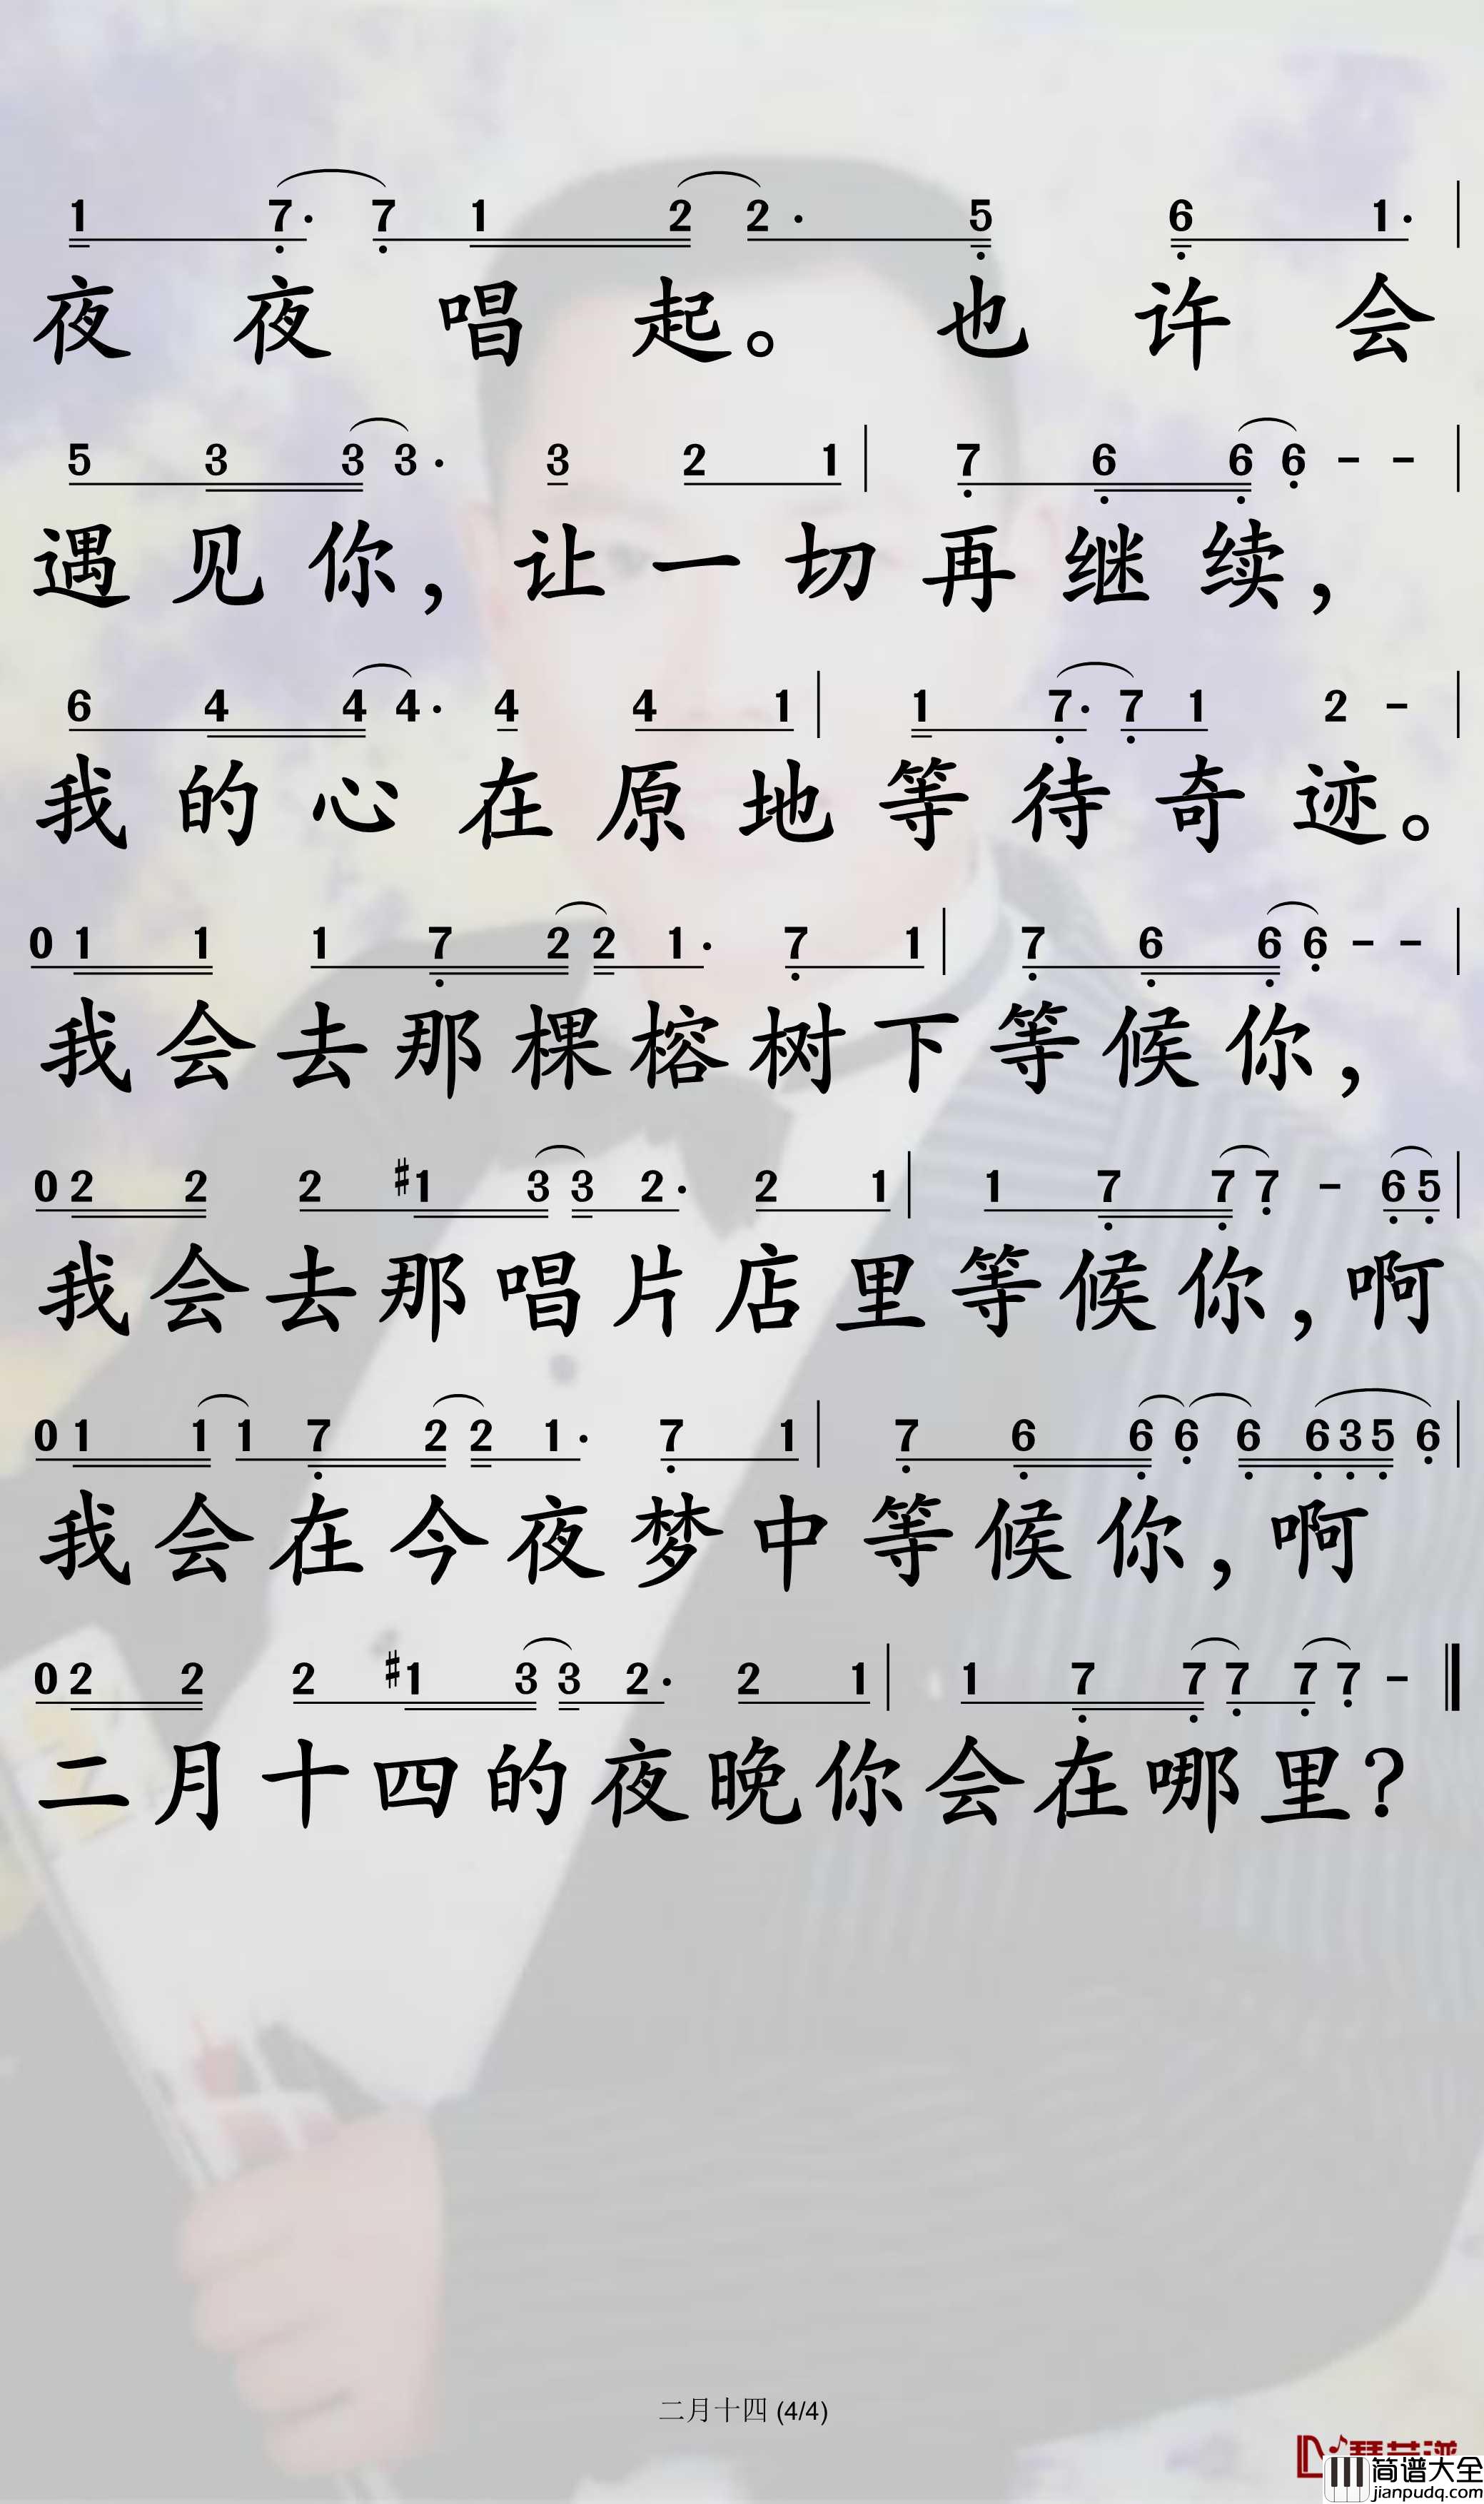 1 7· 7 1 2 2· 5 6 1· |
夜夜唱起。也许会
5 3 3 3· 3 2 1 | 7 6 6 6 - - |
遇见你,让一切再继续,
6 4 4 4· 4 4 1 | 1 7· 7 1 2 - |
我的心在原地等待奇迹。
0 1 1 1 7 2 2 1· 7 1 | 7 6 6 6 - - |
我会去那棵榕树下等候你,
0 2 2 2 #1 3 3 2· 2 1 | 1 7 7 7 - 6 5 |
我会去那唱片店里等候你,啊
0 1 1 1 7 2 2 1· 7 1 | 7 6 6 6 6 6 3 5 6 |
我会在今夜梦中等候你,啊
0 2 2 2 #1 3 3 2· 2 1 | 1 7 7 7 7 7 - ‖
二月十四的夜晚你会在哪里?
二月十四 (4/4)
简谱大全
jianpudq.com